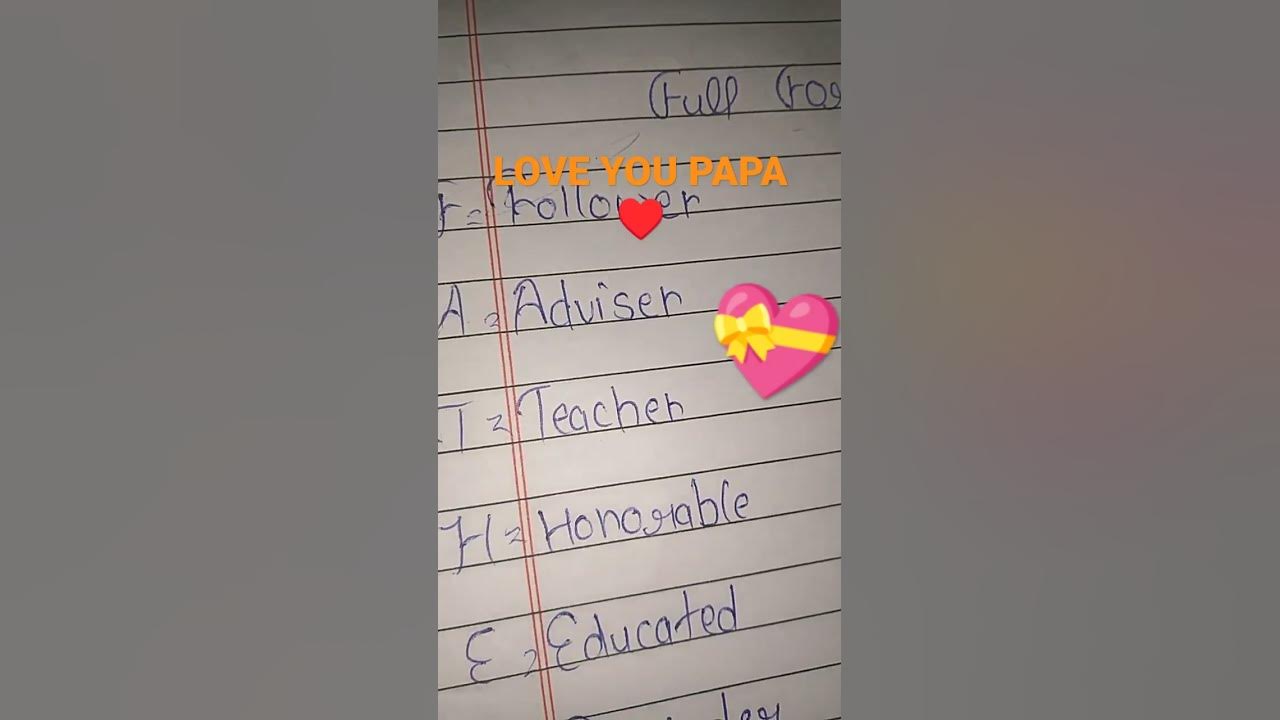 Full
LOVE YOU PAPA
F = Follower
A = Adviser
T = Teacher
H = Honorable
E = Educated